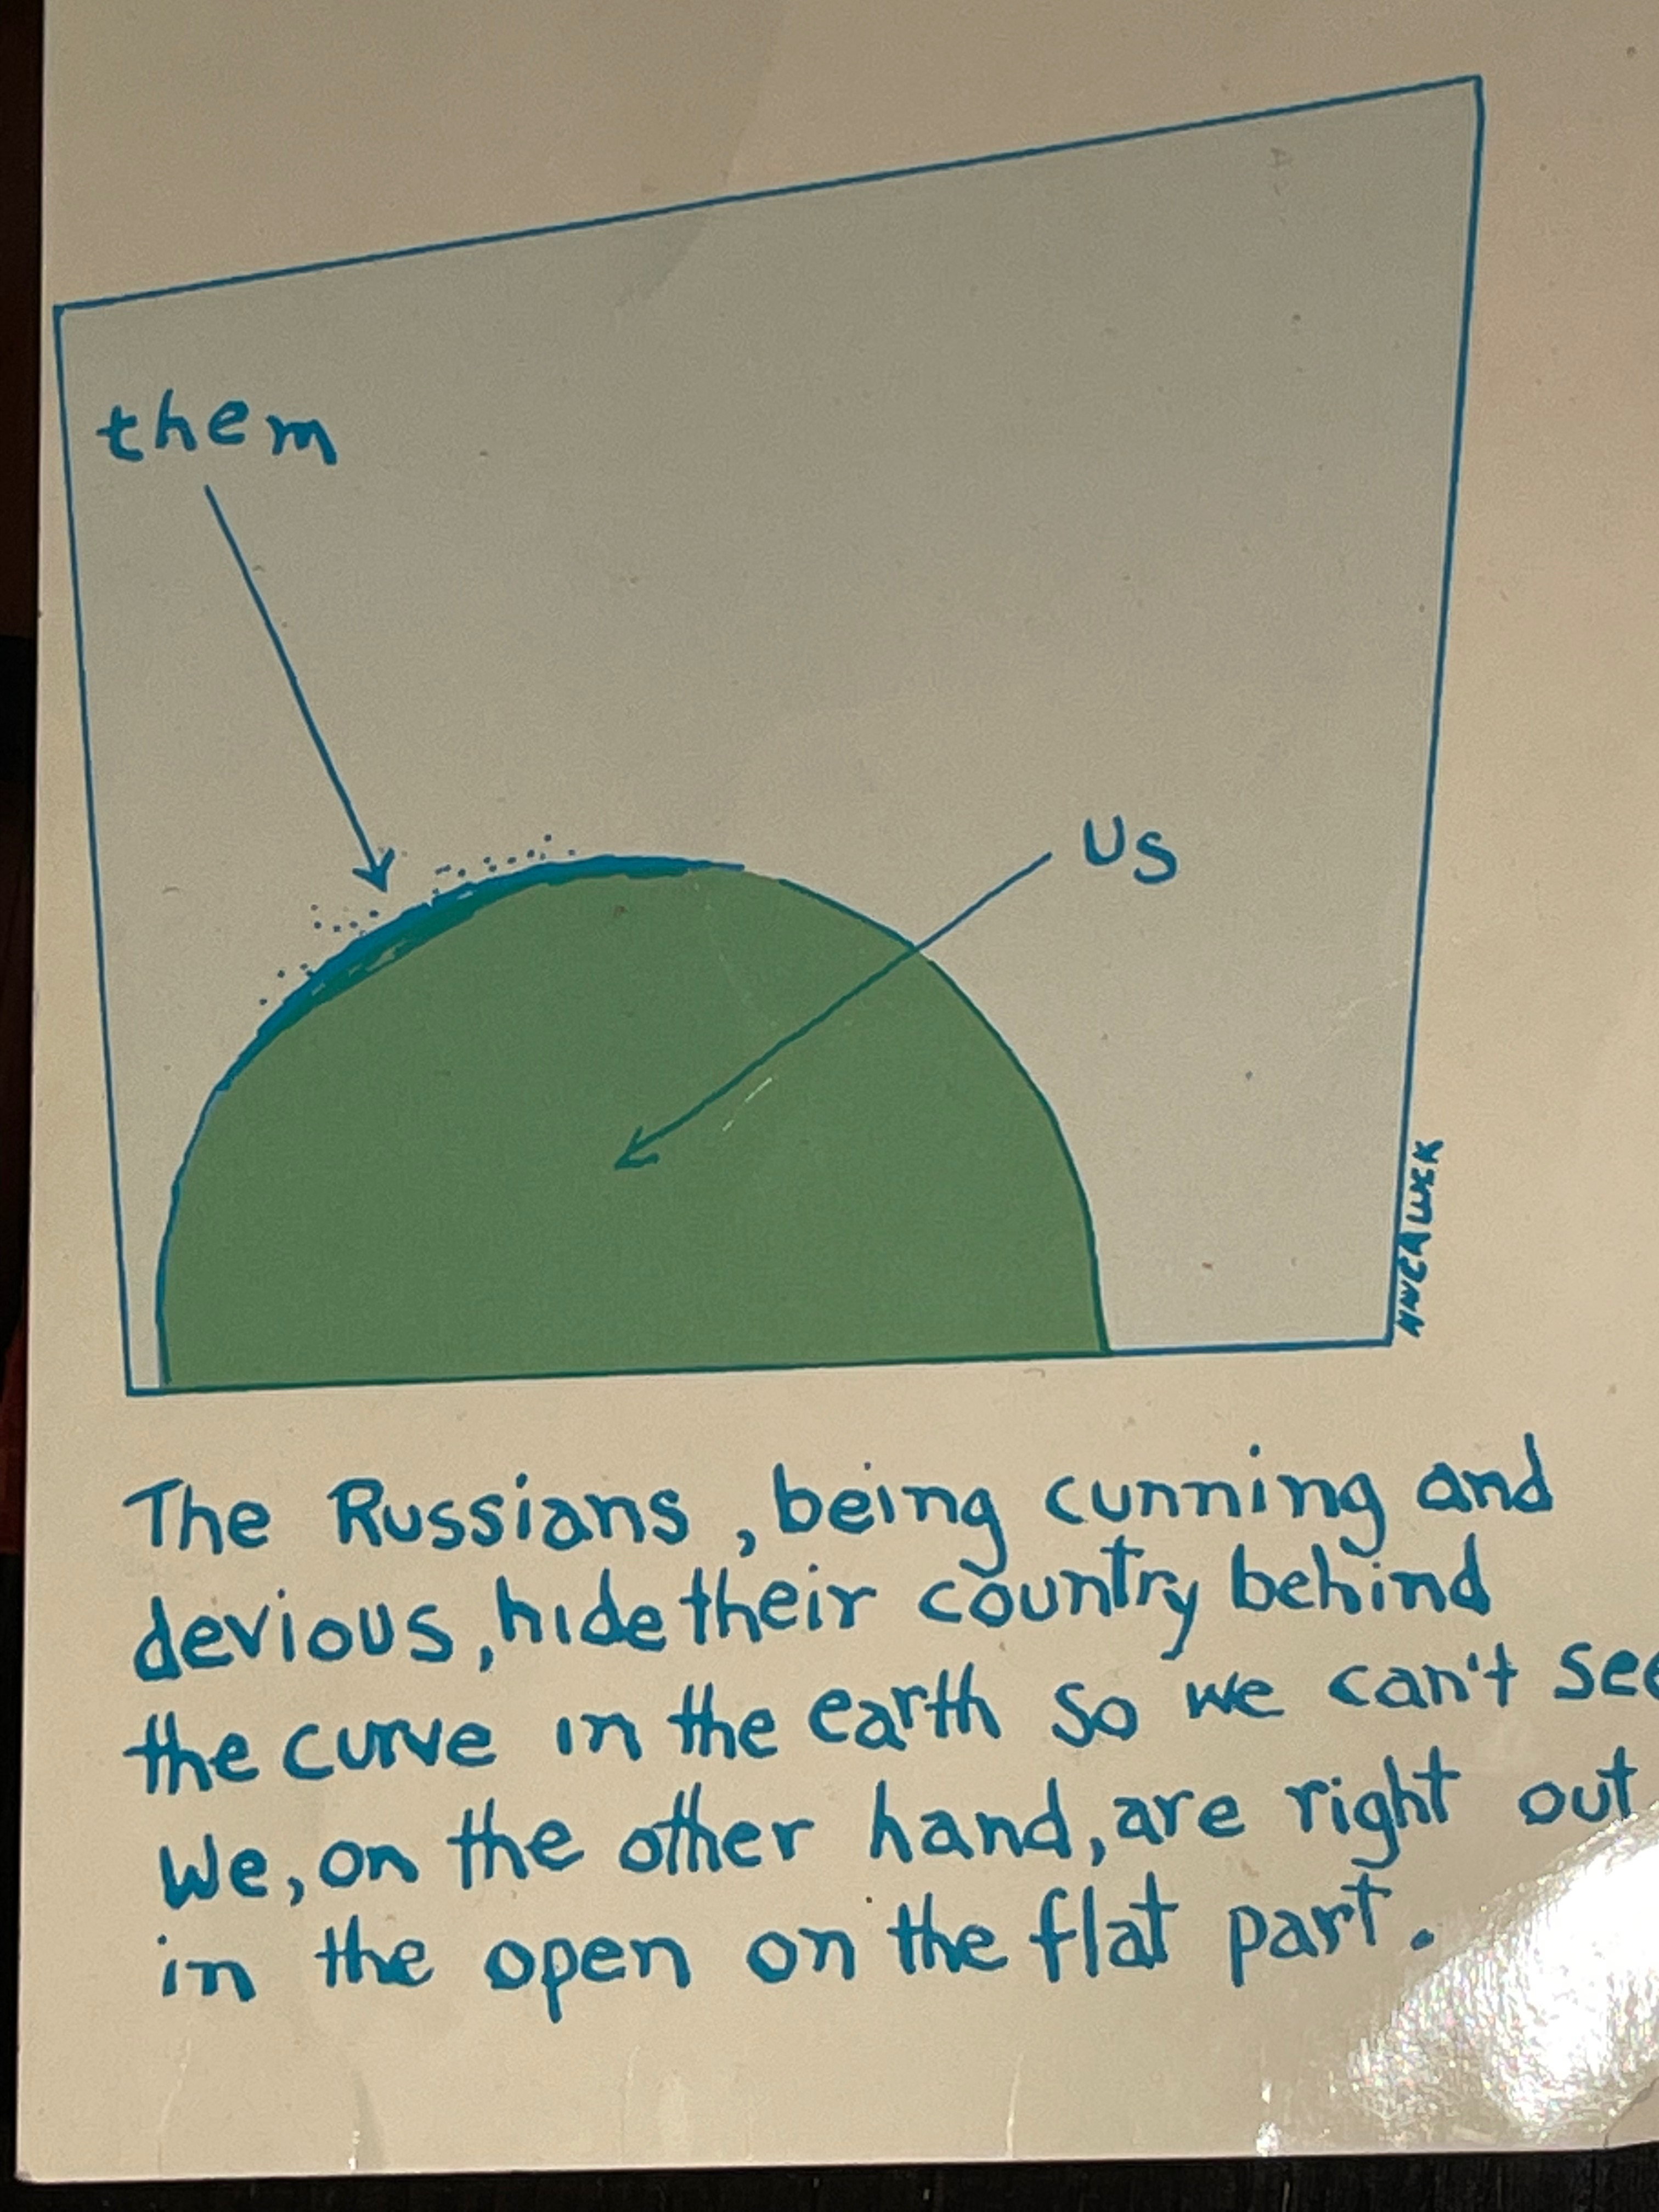 them
us
The Russians, being cunning and
devious, hide their country behind
the curve in the earth so we can't see
We, on the other hand, are right out
in the open on the flat part.